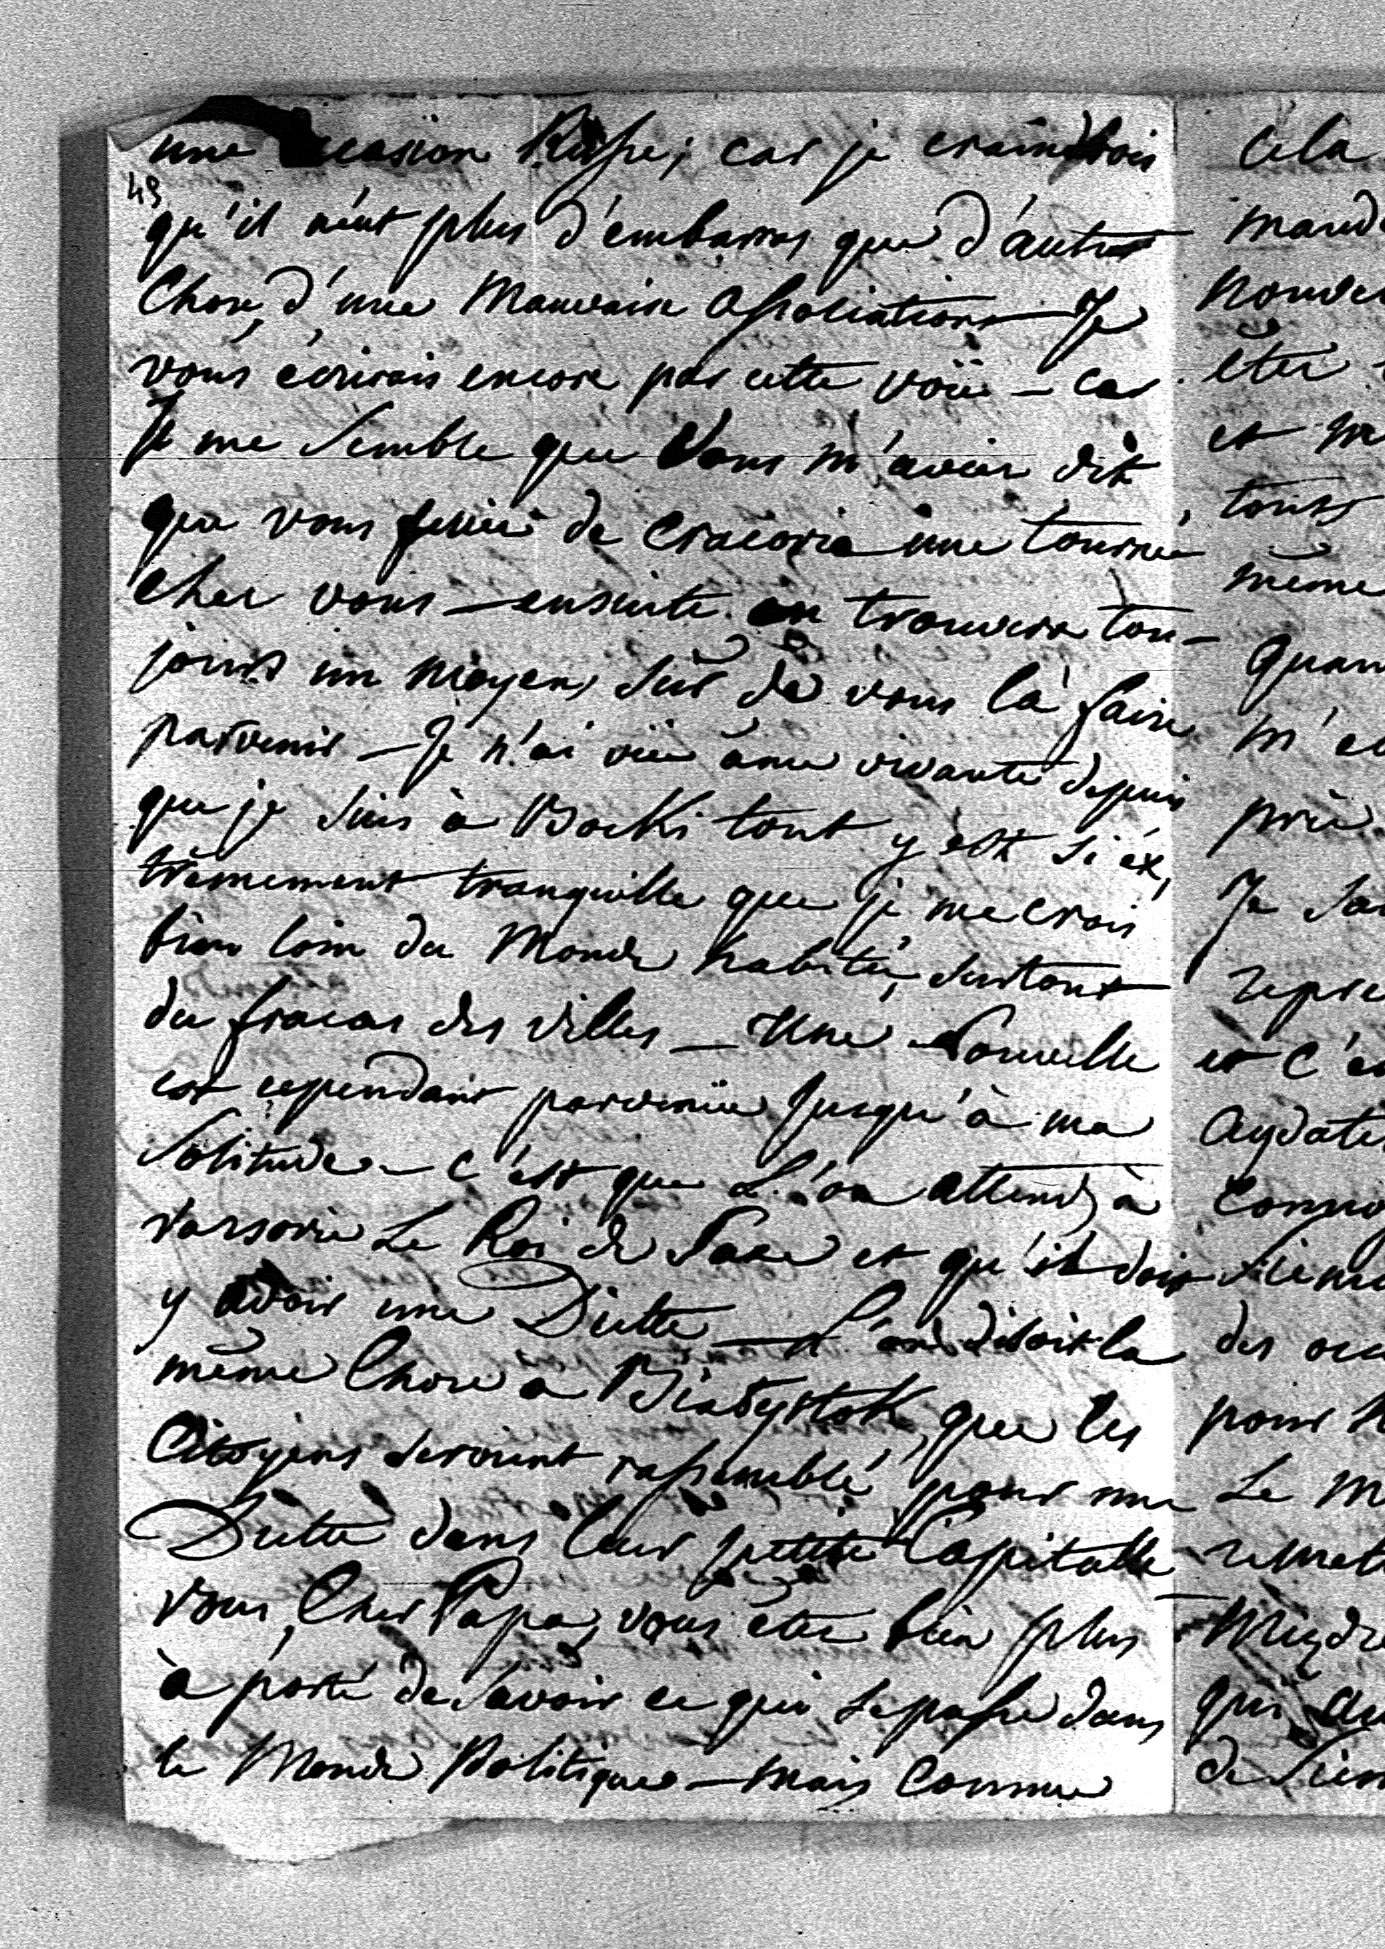 une occasion Russe; car je craindrois
49
qu'il n'eut plus d'embarras que d'autre
Chose, d'une Mauvaise Association — Je
vous écrirais encore par cette voïe — car
Il me Semble que Vous m'aviez dit
que vous feriez de Cracovie une tournée
chez vous — ensuite on trouvera tou-
jours un moyen, Sûr de vous là faire
parvenir — Je n'ai vüe âme vivante depuis
que je Suis à Boćki tout y est si éx,
trêmement tranquille que je me crois
bien loin du Monde habitée, Surtout
du fracas des villes — Une Nouvelle
est cependant parvenüe Jusqu'à ma
Solitude — c'est que L'on attend à
Varsovie Le Roi de Saxe et qu'il doit
y avoir une Diette — L'on disoit la
même Chose à Białystok, que les
Citoyens seroient rassemblé pour une
Diette dans leur petite Capitalle
Vous, Cher Papa, vous êtes bien plus
à porté de Savoir ce qui se passe dans
le Monde Politique — mais comme
cela
même
et
tout
et c'es
pour
Le M
qui